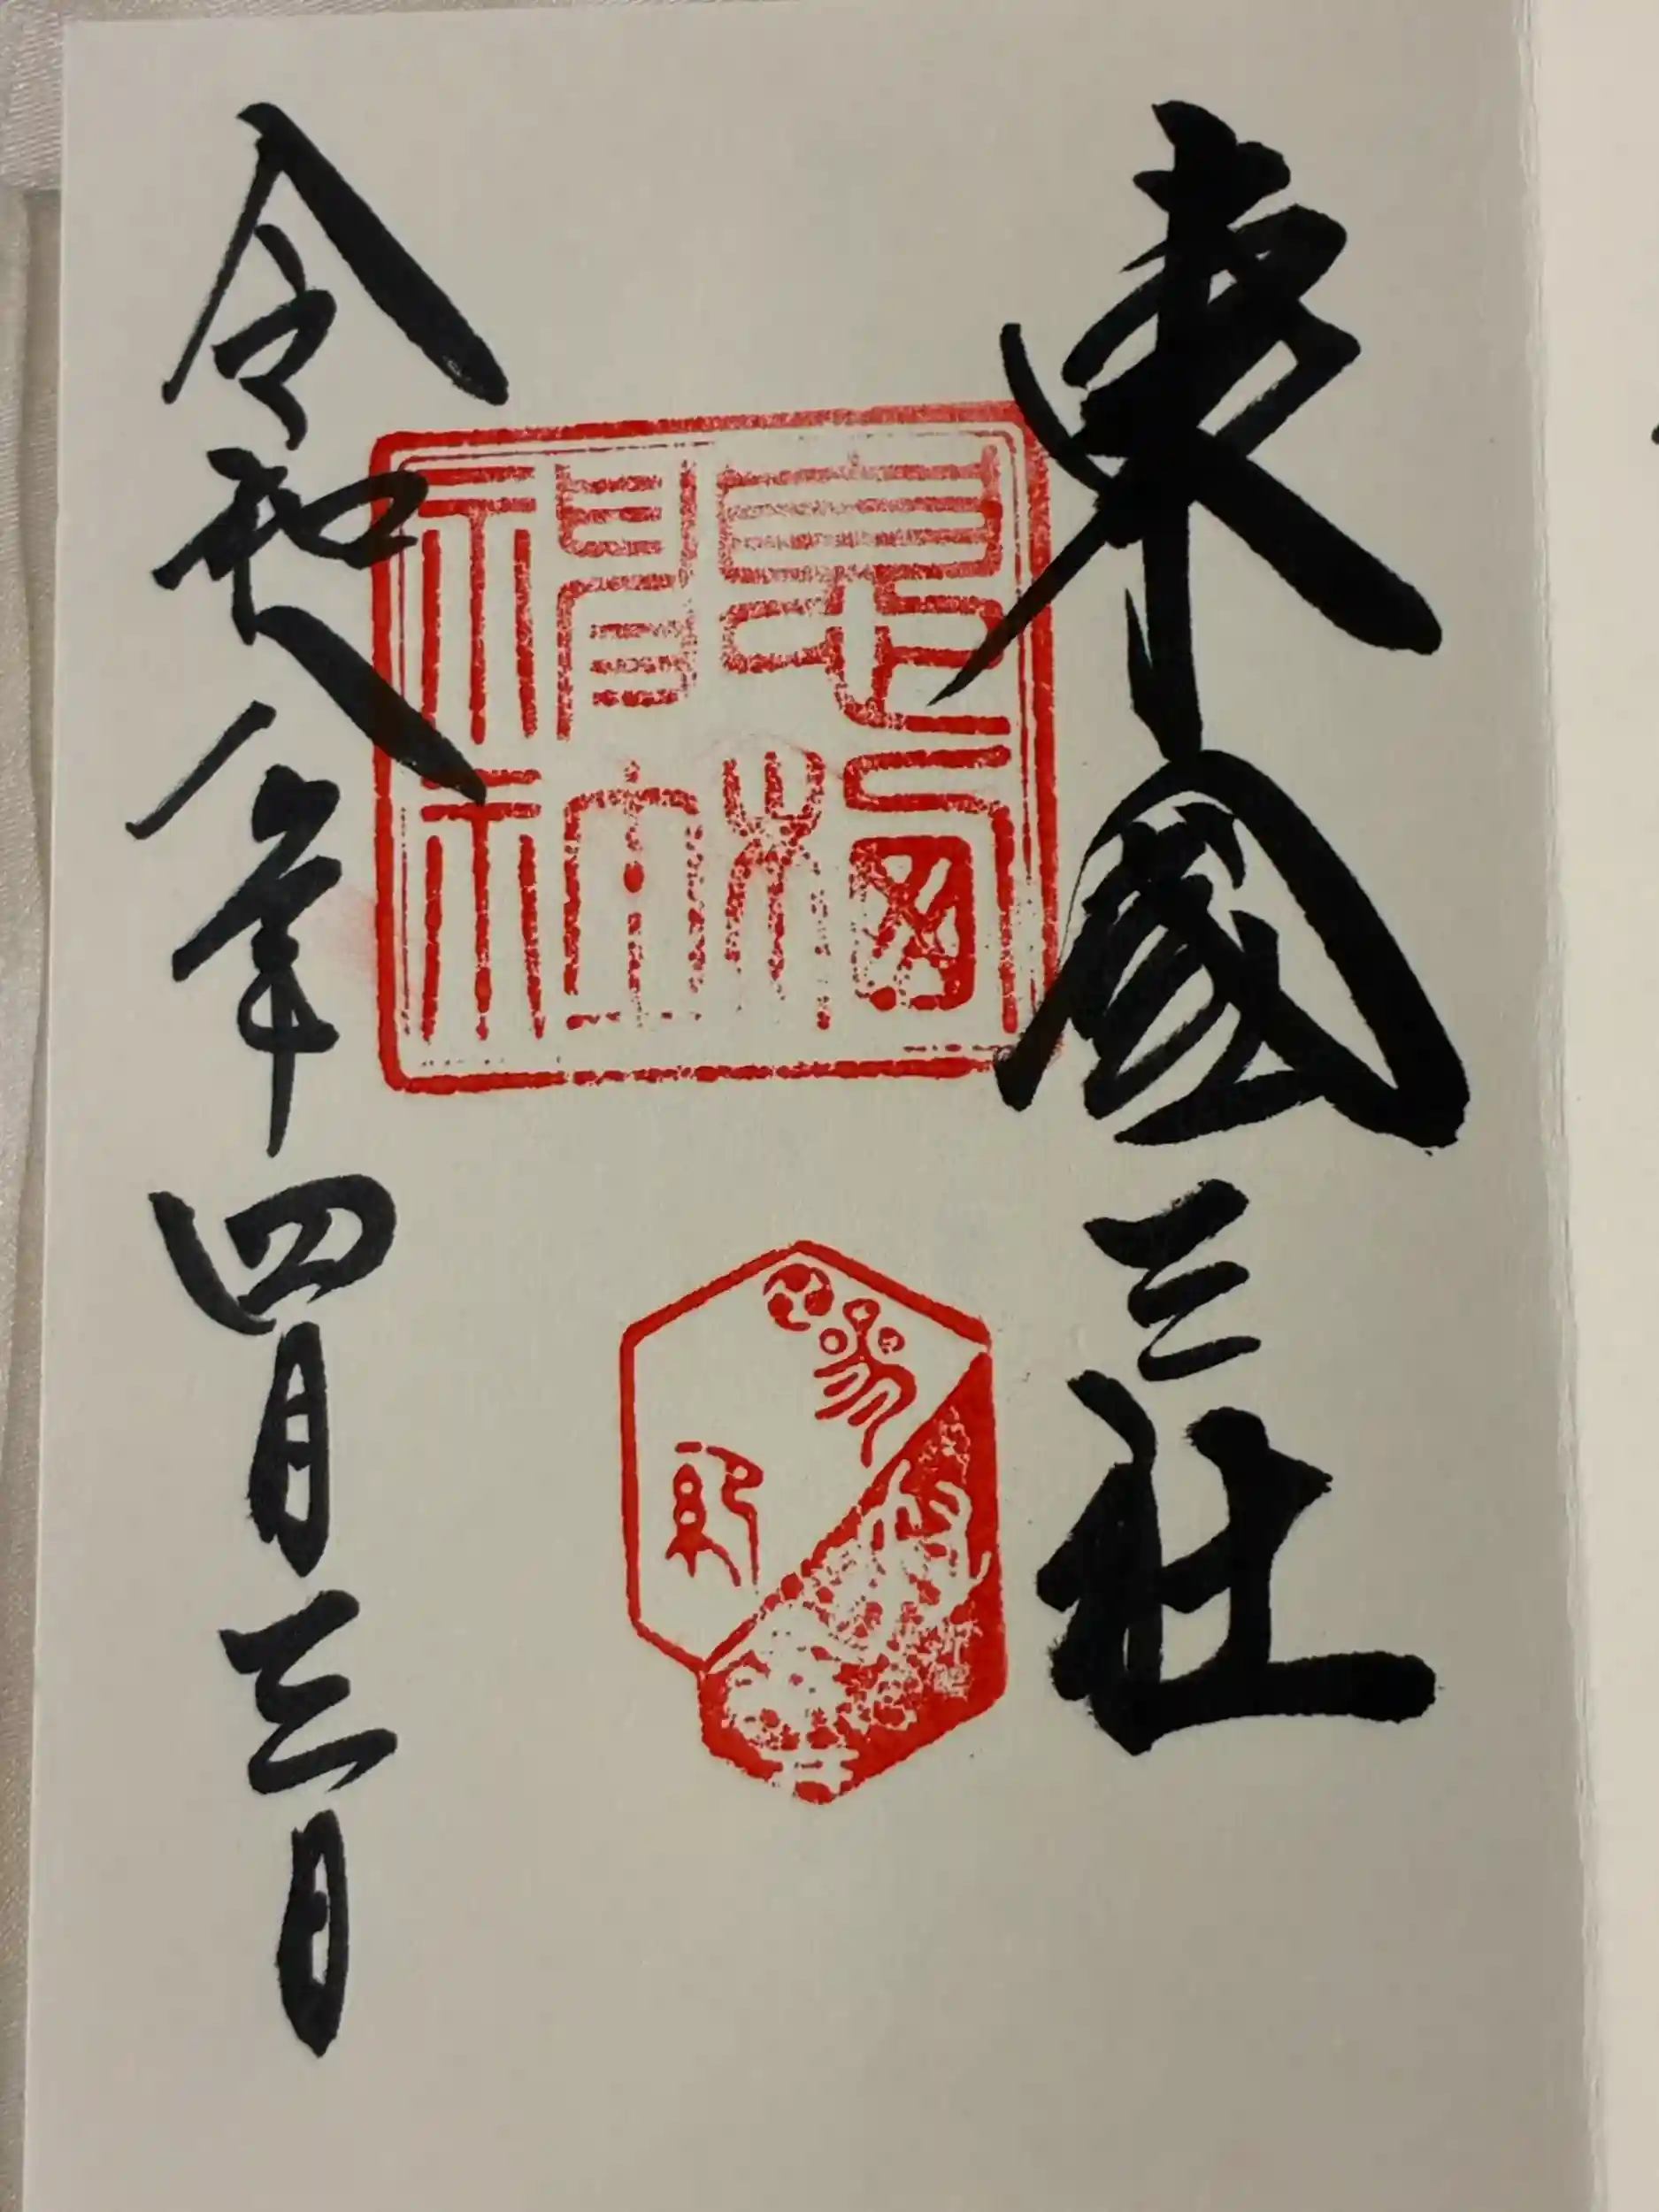 東國三社
息栖神社
令和八年四月三日